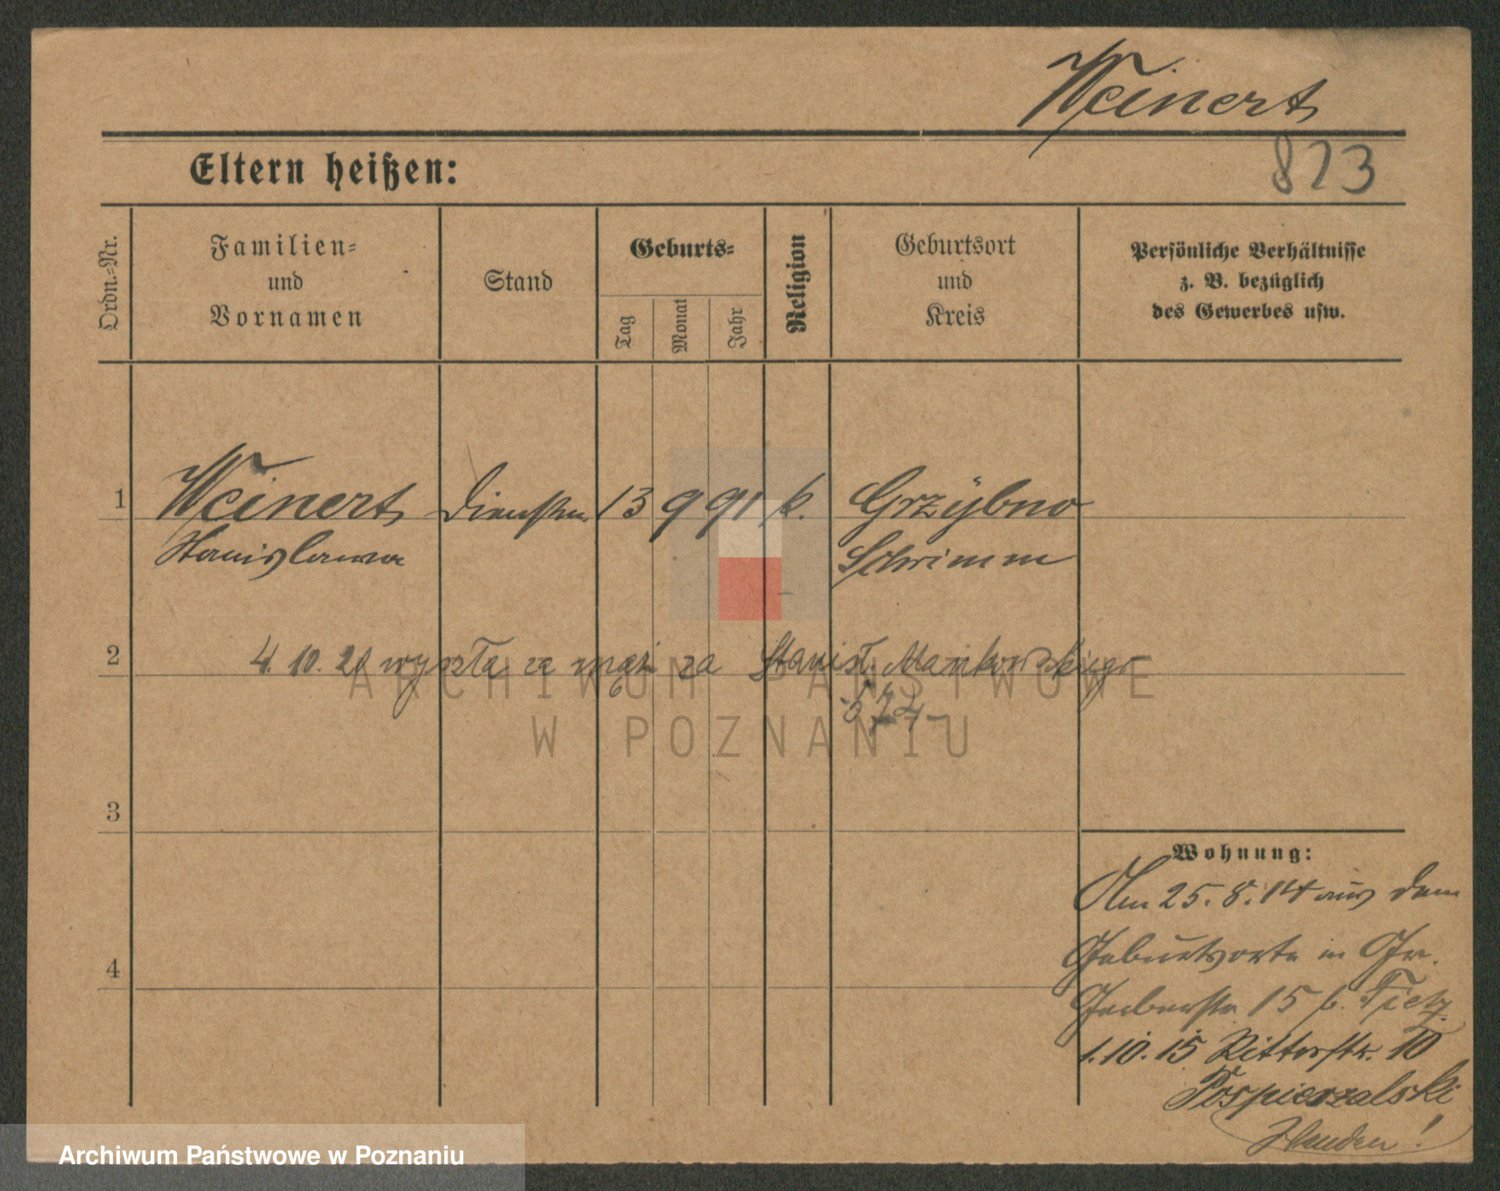 Weinert
Eltern heißen:
823
Ordn.-Nr.
Familien- und Vornamen
Stand
Geburts-
Tag
Monat
Jahr
Religion
Geburtsort und Kreis
Persönliche Verhältnisse
z. B. bezüglich
des Gewerbes usw.
1
Weinert Dienstm. 13 9 91 k. Grzybno
Stanislawa Schrimm
2
4.10.20 wyszła za mąż za Stanisł. Mankowskiego
ARCHIWUM PAŃSTWOWE
W POZNANIU
3
Wohnung:
Am 25.8.14 aus dem
4
Geburtsorte in Gr.
Gerberstr. 15 b. Tietz
1.10.15 Ritterstr. 10
Pospieszalski
Archiwum Państwowe w Poznaniu